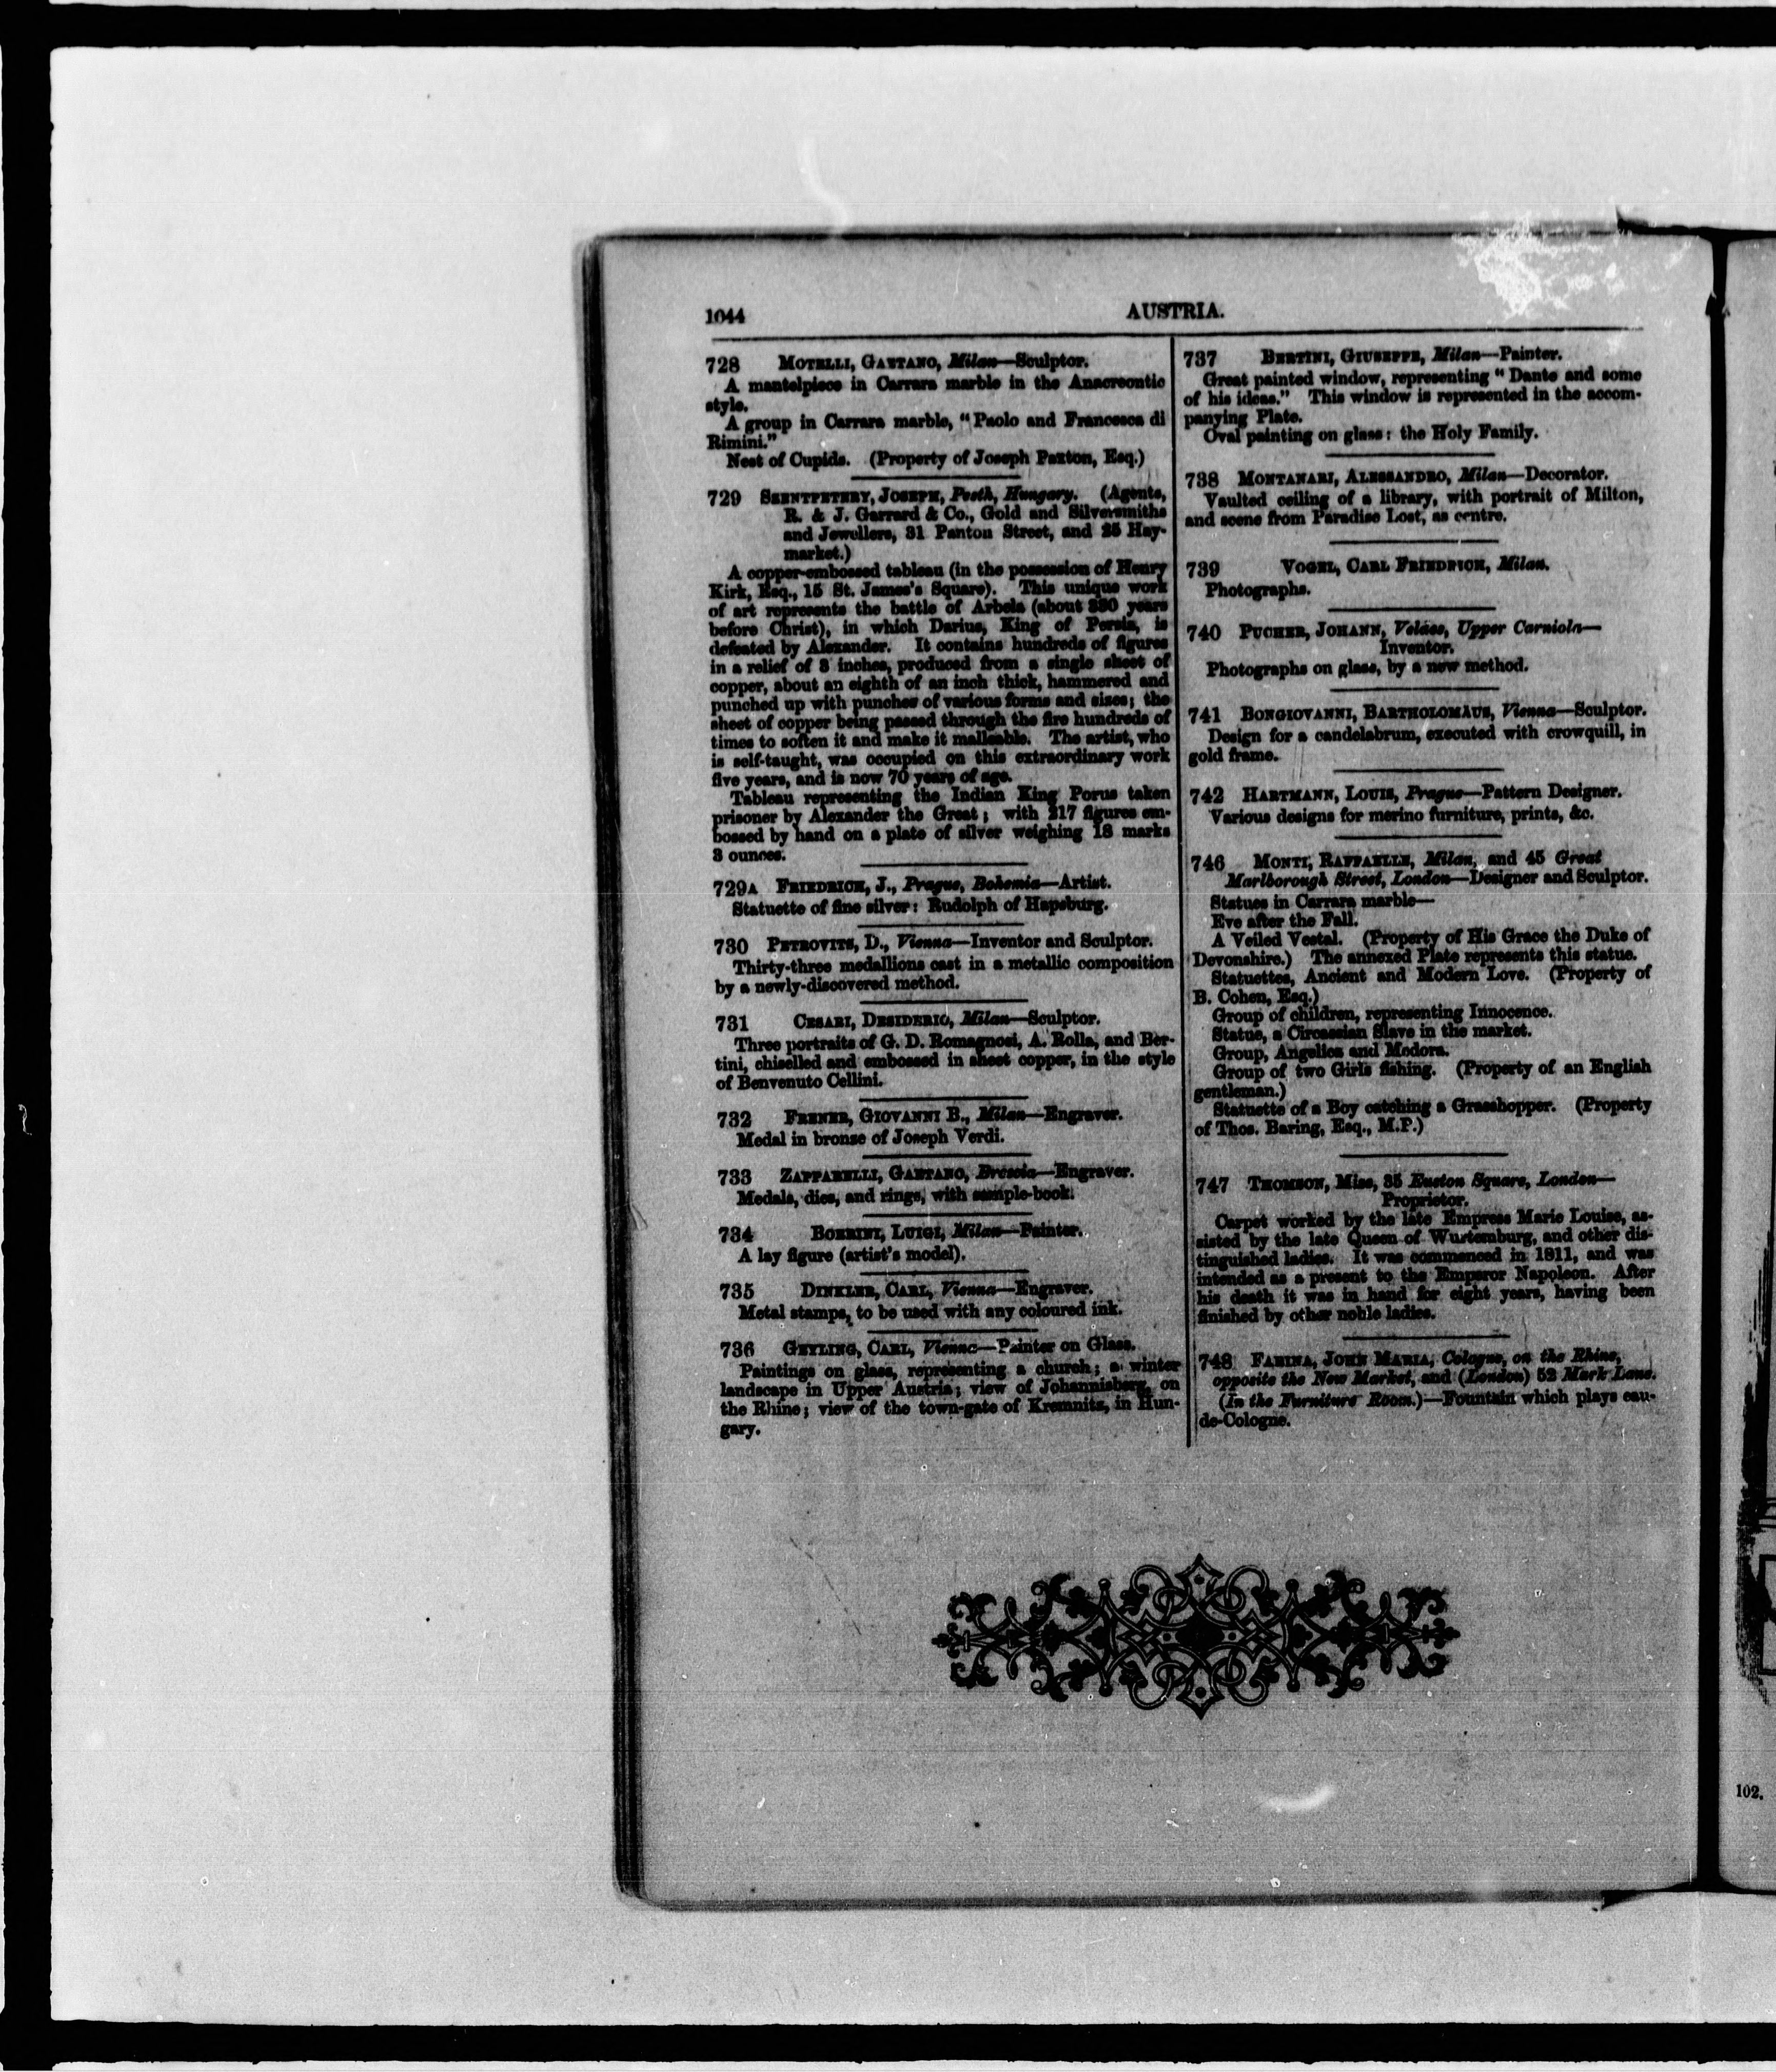 1044
AUSTRIA.
728 MOTELLI, GAETANO, Milan—Sculptor.
A mantelpiece in Carrara marble in the Anacreontic
style.
A group in Carrara marble, "Paolo and Francesca di
Rimini."
Nest of Cupids. (Property of Joseph Paxton, Esq.)
729 SZENTPETERY, JOSEPH, Pesth, Hungary. (Agents,
R. & J. Garrard & Co., Gold and Silversmiths
and Jewellers, 31 Panton Street, and 25 Hay-
market.)
A copper-embossed tableau (in the possession of Henry
Kirk, Esq., 15 St. James's Square). This unique work
of art represents the battle of Arbela (about 330 years
before Christ), in which Darius, King of Persia, is
defeated by Alexander. It contains hundreds of figures
in a relief of 3 inches, produced from a single sheet of
copper, about an eighth of an inch thick, hammered and
punched up with punches of various forms and sizes; the
sheet of copper being passed through the fire hundreds of
times to soften it and make it malleable. The artist, who
is self-taught, was occupied on this extraordinary work
five years, and is now 70 years of age.
Tableau representing the Indian King Porus taken
prisoner by Alexander the Great; with 217 figures em-
bossed by hand on a plate of silver weighing 18 marks
3 ounces.
729A FRIEDRICH, J., Prague, Bohemia—Artist.
Statuette of fine silver: Rudolph of Hapsburg.
730 PETROVITS, D., Vienna—Inventor and Sculptor.
Thirty-three medallions cast in a metallic composition
by a newly-discovered method.
731 CESARI, DESIDERIO, Milan—Sculptor.
Three portraits of G. D. Romagnosi, A. Rolla, and Ber-
tini, chiselled and embossed in sheet copper, in the style
of Benvenuto Cellini.
732 FRENER, GIOVANNI B., Milan—Engraver.
Medal in bronze of Joseph Verdi.
733 ZAPPARELLI, GAETANO, Brescia—Engraver.
Medals, dies, and rings, with sample-book.
734 BORRINI, LUIGI, Milan—Painter.
A lay figure (artist's model).
735 DINKLER, CARL, Vienna—Engraver.
Metal stamps, to be used with any coloured ink.
736 GEYLING, CARL, Vienna—Painter on Glass.
Paintings on glass, representing a church; a winter
landscape in Upper Austria; view of Johannisberg, on
the Rhine; view of the town-gate of Kremnitz, in Hun-
gary.
737 BERTINI, GIUSEPPE, Milan—Painter.
Great painted window, representing "Dante and some
of his ideas." This window is represented in the accom-
panying Plate.
Oval painting on glass: the Holy Family.
738 MONTANARI, ALESSANDRO, Milan—Decorator.
Vaulted ceiling of a library, with portrait of Milton,
and scene from Paradise Lost, as centre.
739 VOGEL, CARL FRIEDRICH, Milan.
Photographs.
740 PUCHER, JOHANN, Veldes, Upper Carniola—
Inventor.
Photographs on glass, by a new method.
741 BONGIOVANNI, BARTHOLOMÄUS, Vienna—Sculptor.
Design for a candelabrum, executed with crowquill, in
gold frame.
742 HARTMANN, LOUIS, Prague—Pattern Designer.
Various designs for merino furniture, prints, &c.
746 MONTI, RAFFAELLE, Milan, and 45 Great
Marlborough Street, London—Designer and Sculptor.
Statues in Carrara marble—
Eve after the Fall.
A Veiled Vestal. (Property of His Grace the Duke of
Devonshire.) The annexed Plate represents this statue.
Statuettes, Ancient and Modern Love. (Property of
B. Cohen, Esq.)
Group of children, representing Innocence.
Statue, a Circassian Slave in the market.
Group, Angelica and Medora.
Group of two Girls fishing. (Property of an English
gentleman.)
Statuette of a Boy catching a Grasshopper. (Property
of Thos. Baring, Esq., M.P.)
747 THOMSON, Miss, 35 Euston Square, London—
Proprietor.
Carpet worked by the late Empress Marie Louise, as-
sisted by the late Queen of Wurtemburg, and other dis-
tinguished ladies. It was commenced in 1811, and was
intended as a present to the Emperor Napoleon. After
his death it was in hand for eight years, having been
finished by other noble ladies.
748 FARINA, JOHN MARIA, Cologne, on the Rhine,
opposite the New Market, and (London) 52 Mark Lane.
(In the Furniture Room.)—Fountain which plays eau-
de-Cologne.
102.